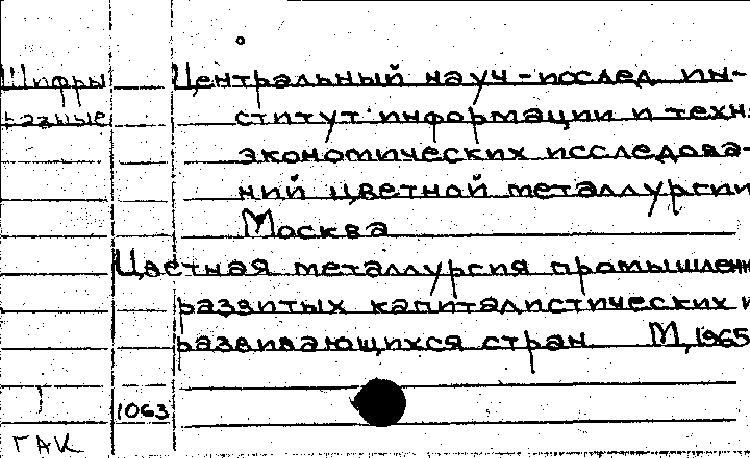 Шифры Центральный науч-исслед. ин-
разные ститут информации и техн.
экономических исследова-
ний цветной металлургии
Москва
Цветная металлургия промышленн
развитых капиталистических и
развивающихся стран М, 1965
1063
ГАК